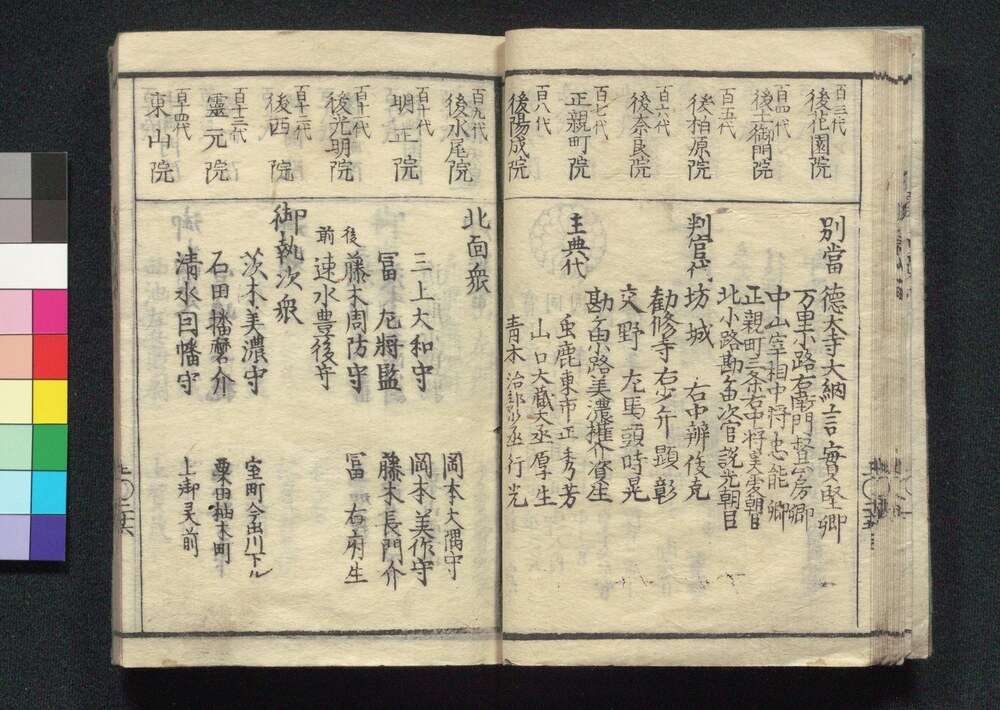 百三代
後花園院
百四代
後土御門院
百五代
後柏原院
百六代
後奈良院
百七代
正親町院
百八代
後陽成院
別當
德大寺大納言實堅卿
万里小路右衛門督 房卿
中山宰相中将忠能卿
正親町三条右中将実愛朝臣
北小路勘ヶ由次官説光朝臣
判官代
坊城 右中辨俊克
勧修寺右少弁顕彰
交野 左馬頭時晃
勘ヶ由小路美濃権介資生
主典代
鹿東市正秀芳
山口大蔵大丞厚生
青木治部 丞行光
百九代
後水尾院
百十代
明正院
百十一代
後光明院
百十二代
後西院
百十三代
靈元院
百十四代
東山院
北面衆
三上大和守
冨左將監
後 藤木周防守
前 速水豊後守
岡本大隅守
岡本美作守
藤木長門介
冨 右府生
御執次衆
茨木美濃守
室町今出川下ル
石田播磨介
粟田 町
清水因幡守
上御灵前